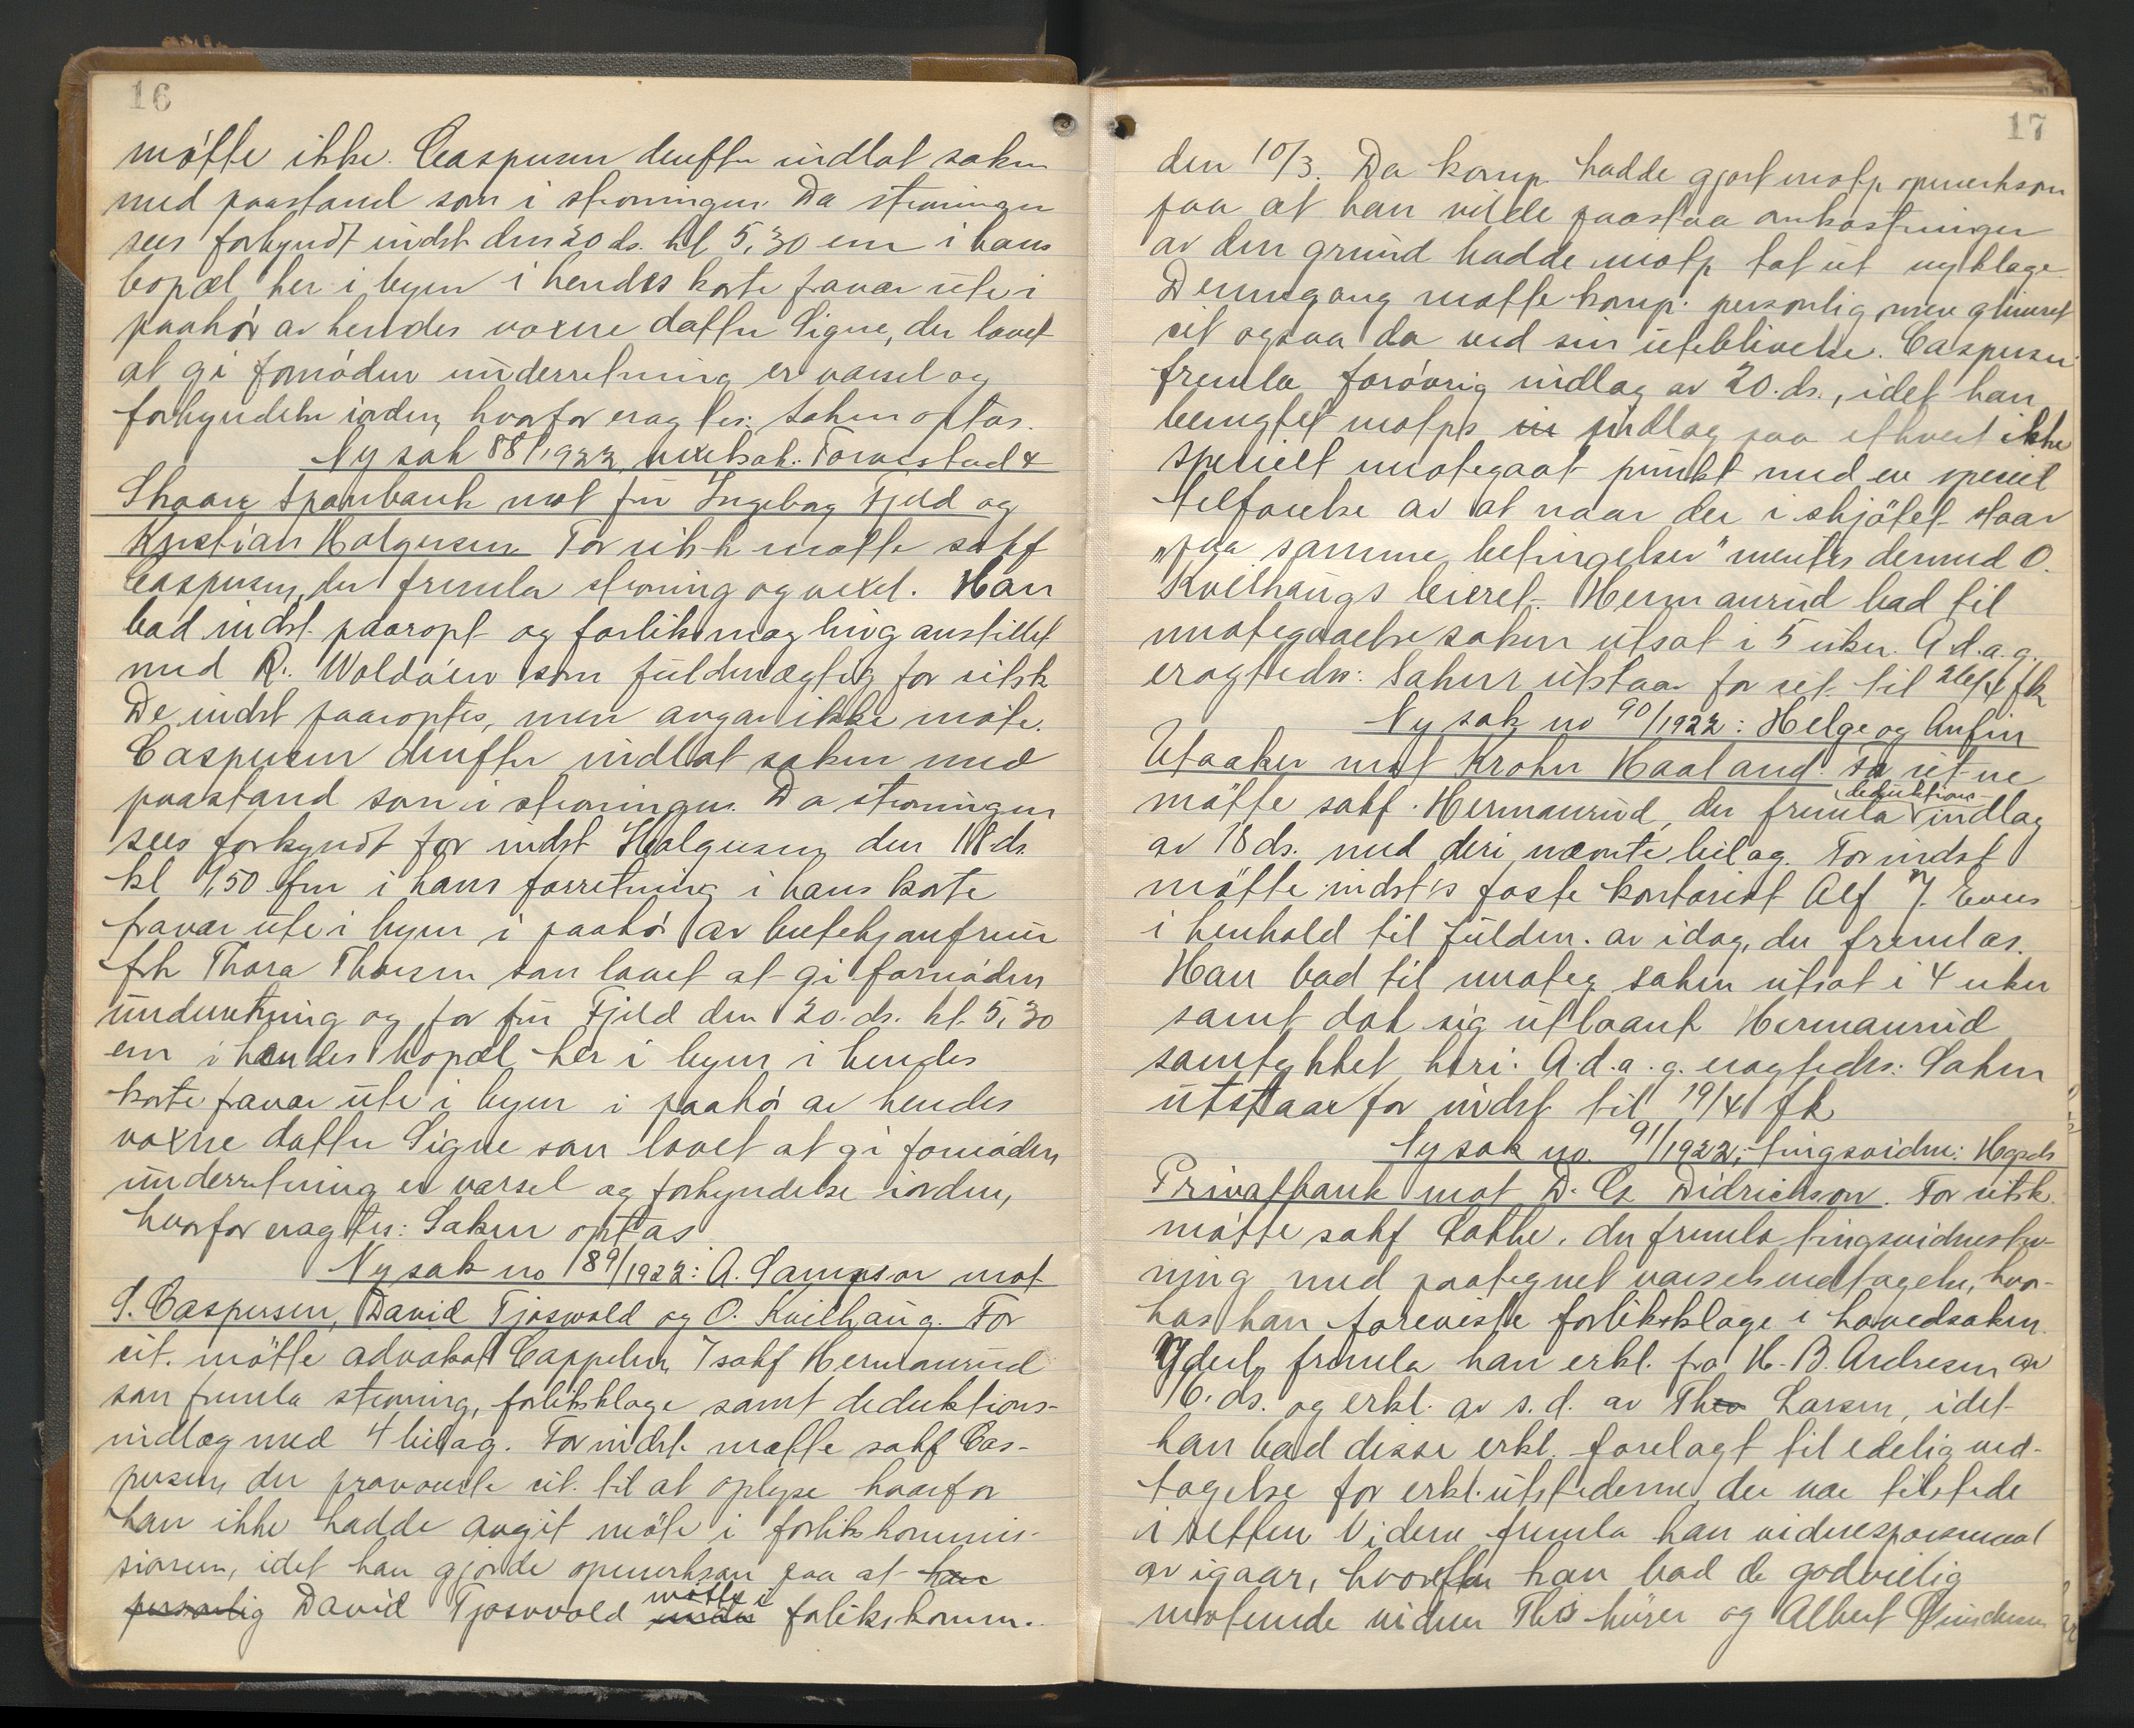 16
møtte ikke. Caspersen derefter indlot saken
med paastand som i stevningen. Da stevningen
sees forkyndt indst. den 20 ds. kl 5,30 em i hans
bopæl her i byen i hendes korte fravær ute i
paahør av hendes voxne datter Signe, der lovet
at gi fornøden underretning er varsel og
forkyndelse iorden, hvorfor eragtes: Saken optas.
Ny sak 88/1922, vexelsak: Torvestad &
Skaare Sparebank mot fru Ingeborg Fjeld og
Kristian Holgersen For citst. møtte sakf
Caspersen, der fremla stevning og vexel. Han
bad indst. paaropt og forliksmægling anstillet
med R. Woldøen som fuldmægtig for citsk.
De indst paaroptes, men avgav ikke møte.
Caspersen derefter indlot saken med
paastand som i stevningen. Da stevningen
sees forkyndt for indst Holgersen den 18 ds.
kl 9,50 fm i hans forretning i hans korte
fravær ute i byen i paahør av butikjomfruen
frk Thora Thorsen som lovet at gi fornøden
underretning og for fru Fjeld den 20. ds. kl. 5,30
em i hendes bopæl her i byen i hendes
korte fravær ute i byen i paahør av hendes
voxne datter Signe som lovet at gi fornøden
underretning er varsel og forkyndelse iorden,
hvorfor eragtes: Saken optas
Ny sak no 89/1922: A. Sampson mot
S. Caspersen, David Tjosvold og O. Kvilhaug. For
cit. møtte advokat Cappelen v/ sakf Hermanrud
som fremla stevning, forliksklage samt deduktions-
indlæg med 4 bilag. For indst. møtte sakf Cas-
persen, der provoserte cit. til at oplyse hvorfor
han ikke hadde avgit møte i forlikskommis-
sionen, idet han gjorde opmerksom paa at han
personlig David Tjosvold møtte i forlikskomm.
17
den 10/3. Da komp. hadde gjort motp. opmerksom
paa at han vilde paastaa omkostninger
av den grund hadde motp tat ut ny klage.
Dennegang møtte komp. personlig, men glimret
cit ogsaa da ved sin uteblivelse. Caspersen
fremla forøvrig indlæg av 20. ds., idet han
benegtet motps in indlæg paa ethvert ikke
specielt imøtegaat punkt med en speciel
tilføielse av at naar der i skjøtet staar
"paa samme betingelser" mentes dermed O.
Kvilhaugs leieret. Hermanrud bad til
imøtegaaelse saken utsat i 5 uker. A.d.a.g.
eragtedes: Saken utstaar for cit. til 26/4 fk
Ny sak no 90/1922: Helge og Anfin
Utaaker mot Krohn Haaland. For cit-ne
møtte sakf. Hermanrud, der fremla deduktions-indlæg
av 18 ds. med deri nævnte bilag. For indst
møtte indst's faste kontorist Alf J. Evers
i henhold til fuldm. av idag, der fremlas.
Han bad til imøteg. saken utsat i 4 uker
samt dok sig utlaant Hermanrud
samtykket heri. A.d.a.g. eragtedes: Saken
utstaar for indst til 19/4 fk
Ny sak no. 91/1922, tingsvidne: Hgsds
Privatbank mot D. G. Didrichson. For citsk.
møtte sakf Lothe, der fremla tingsvidnestev-
ning med paategnet varselsvedtagelse, hvor-
hos han foreviste forliksklage i hovedsaken.
Ydterl. fremla han erkl. fra H. B. Andresen av
16. ds. og erkl. av s.d. av Theo Larsen, idet
han bad disse erkl. forelagt til edelig ved-
tagelse for erkl.utstederne, der var tilstede
i retten Videre fremla han vidnespørsmaal
av igaar, hvorefter han bad de godvillig
møtende vidner Ths hürer og Albert